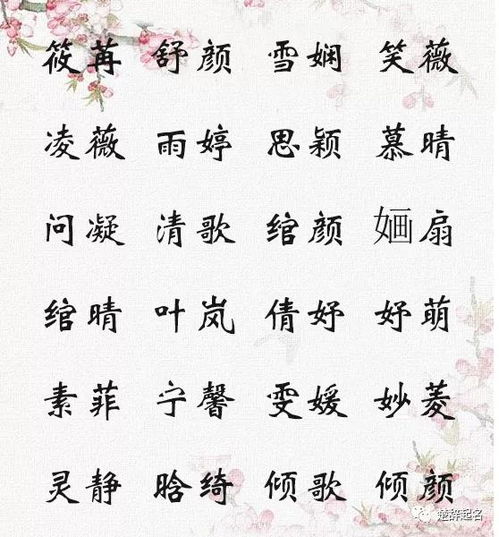 筱苒 舒颜 雪娴 笑薇
凌薇 雨婷 思颖 慕晴
问凝 清歌 绾颜 婳扇
绾晴 叶岚 倩妤 妤萌
素菲 宁馨 雯媛 妙菱
灵静 晗绮 倾歌 倾颜
楚辞起名